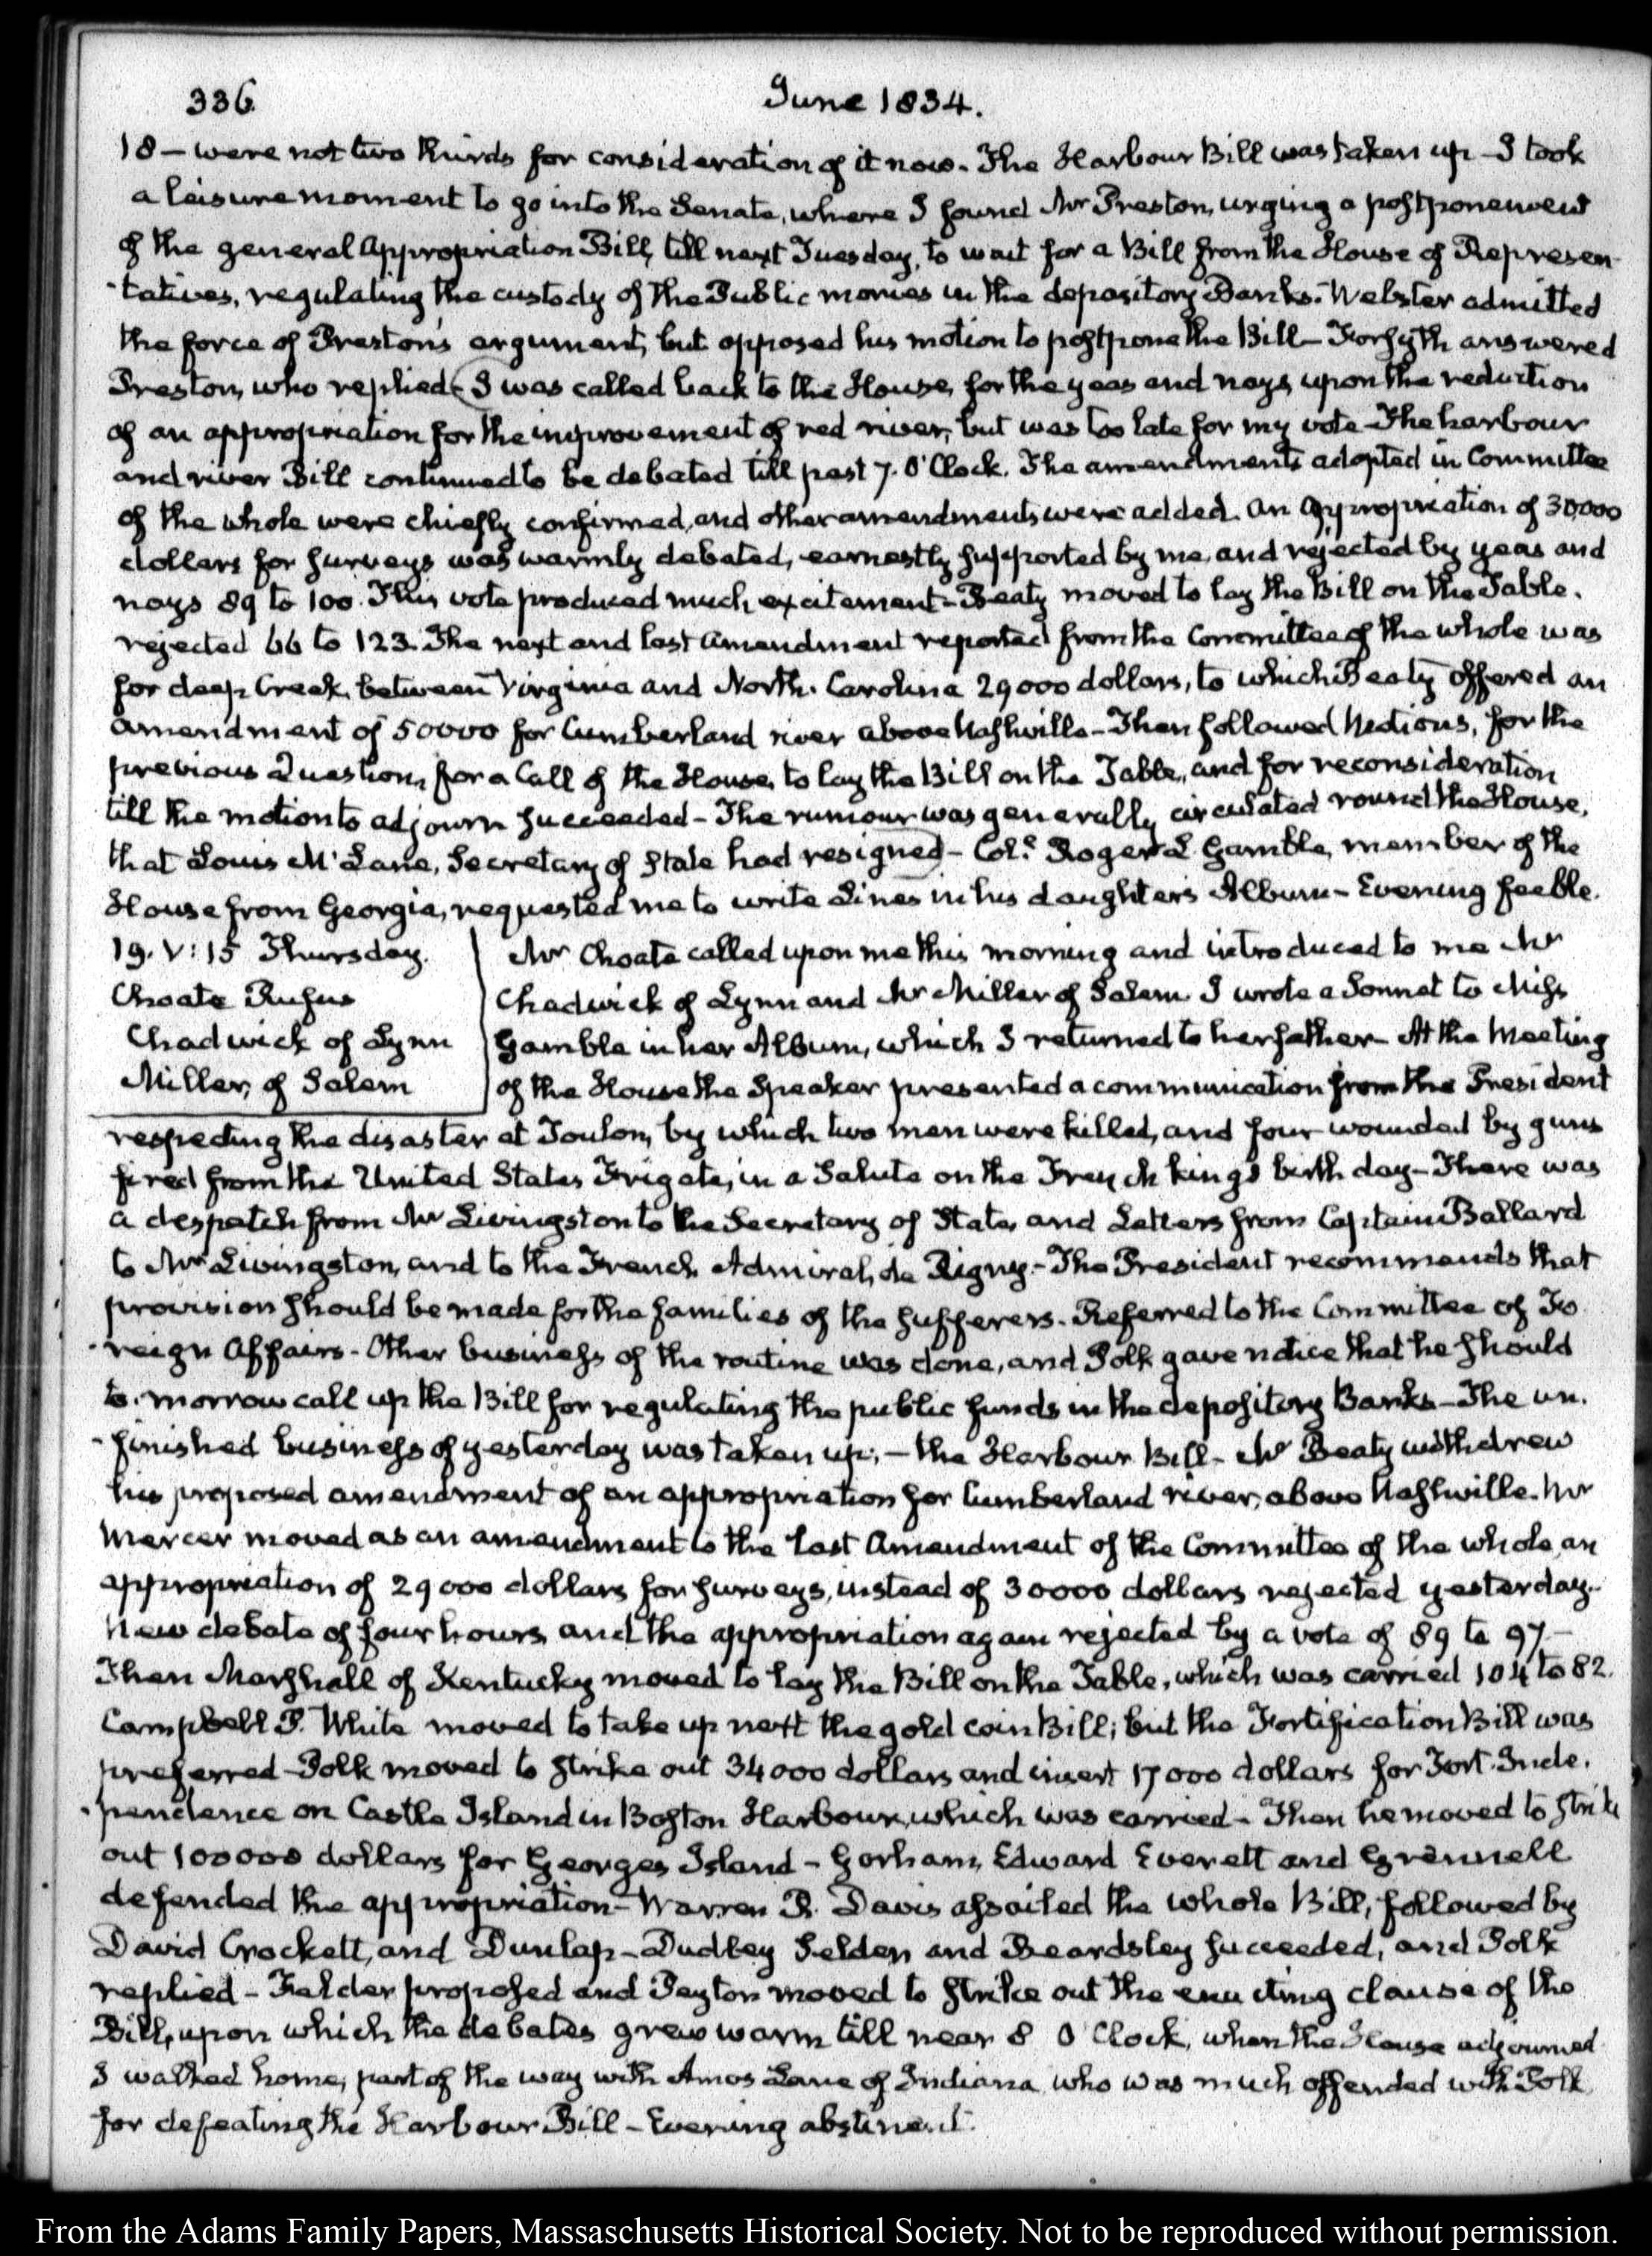 336
June 1834.
18 – were not two thirds for consideration of it now. The Harbour Bill was taken up – I took
a leisure moment to go into the Senate, where I found Mr Preston, urging a postponement
of the general Appropriation Bill, till next Tuesday, to wait for a Bill from the House of Represen
tatives, regulating the custody of the Public monies in the depository Banks. Webster admitted
the force of Preston's argument, but opposed his motion to postpone the Bill – Forsyth answered
Preston, who replied – I was called back to the House, for the yeas and nays, upon the reduction
of an appropriation for the improvement of red river, but was too late for my vote – The harbour
and river Bill continued to be debated till past 7. O'Clock. The amendments adopted in Committee
of the whole were chiefly confirmed, and other amendments were added. An appropriation of 30000
dollars for surveys was warmly debated, earnestly supported by me, and rejected by yeas and
nays 89 to 100. This vote produced much excitement – Beaty moved to lay the Bill on the Table.
rejected 66 to 123. The next and last amendment reported from the Committee of the whole was
for deep Creek, between Virginia and North. Carolina 29000 dollars, to which Beaty offered an
amendment of 50000 for Cumberland river above Nashville – Then followed Motions, for the
previous Question, for a Call of the House, to lay the Bill on the Table, and for reconsideration
till the motion to adjourn succeeded – The rumour was generally circulated round the House,
that Louis McLane, Secretary of State had resigned – Col. Roger L Gamble, member of the
House from Georgia, requested me to write Lines in his daughter's Album – Evening feeble.
19. V:15 Thursday.
Choate Rufus
Chadwick of Lynn
Miller, of Salem
Mr Choate called upon me this morning and introduced to me Mr
Chadwick of Lynn and Mr Miller of Salem. I wrote a Sonnet to Miss
Gamble in her Album, which I returned to her father – At the Meeting
of the House the Speaker presented a communication from the President
respecting the disaster at Toulon, by which two men were killed, and four wounded by guns
fired from the United States Frigate, in a Salute on the French king's birth day – There was
a despatch from Mr Livingston to the Secretary of State, and Letters from Captain Ballard
to Mr Livingston, and to the French Admiral, de Rigny. – The President recommends that
provision should be made for the families of the sufferers. Referred to the Committee of Fo
reign Affairs – Other business of the routine was done, and Polk gave notice that he should
to-morrow call up the Bill for regulating the public funds in the depository Banks – The un.
finished business of yesterday was taken up; – the Harbour Bill – Mr Beaty withdrew
his proposed amendment of an appropriation for Cumberland river, above Nashville. Mr
Mercer moved as an amendment to the last Amendment of the Committee of the whole, an
appropriation of 29000 dollars for surveys, instead of 30000 dollars rejected yesterday.
New debate of four hours and the appropriation again rejected by a vote of 89 to 97. –
Then Marshall of Kentucky moved to lay the Bill on the Table, which was carried 104 to 82.
Campbell P. White moved to take up next the gold coin Bill; but the Fortification Bill was
preferred – Polk moved to strike out 34000 dollars and insert 17000 dollars for Fort. Inde.
pendence on Castle Island in Boston Harbour, which was carried – Then he moved to strike
out 100000 dollars for Georges Island – Gorham, Edward Everett and Grennell
defended the appropriation – Warren R. Davis assailed the whole Bill, followed by
David Crockett, and Dunlap – Dudley Selden and Beardsley succeeded, and Polk
replied – Felder proposed and Peyton moved to strike out the enacting clause of the
Bill, upon which the debates grew warm till near 8 O'Clock, when the House adjourned
I walked home, part of the way with Amos Lane of Indiana who was much offended with Polk
for defeating the Harbour Bill – Evening abstinent.
From the Adams Family Papers, Massaschusetts Historical Society. Not to be reproduced without permission.